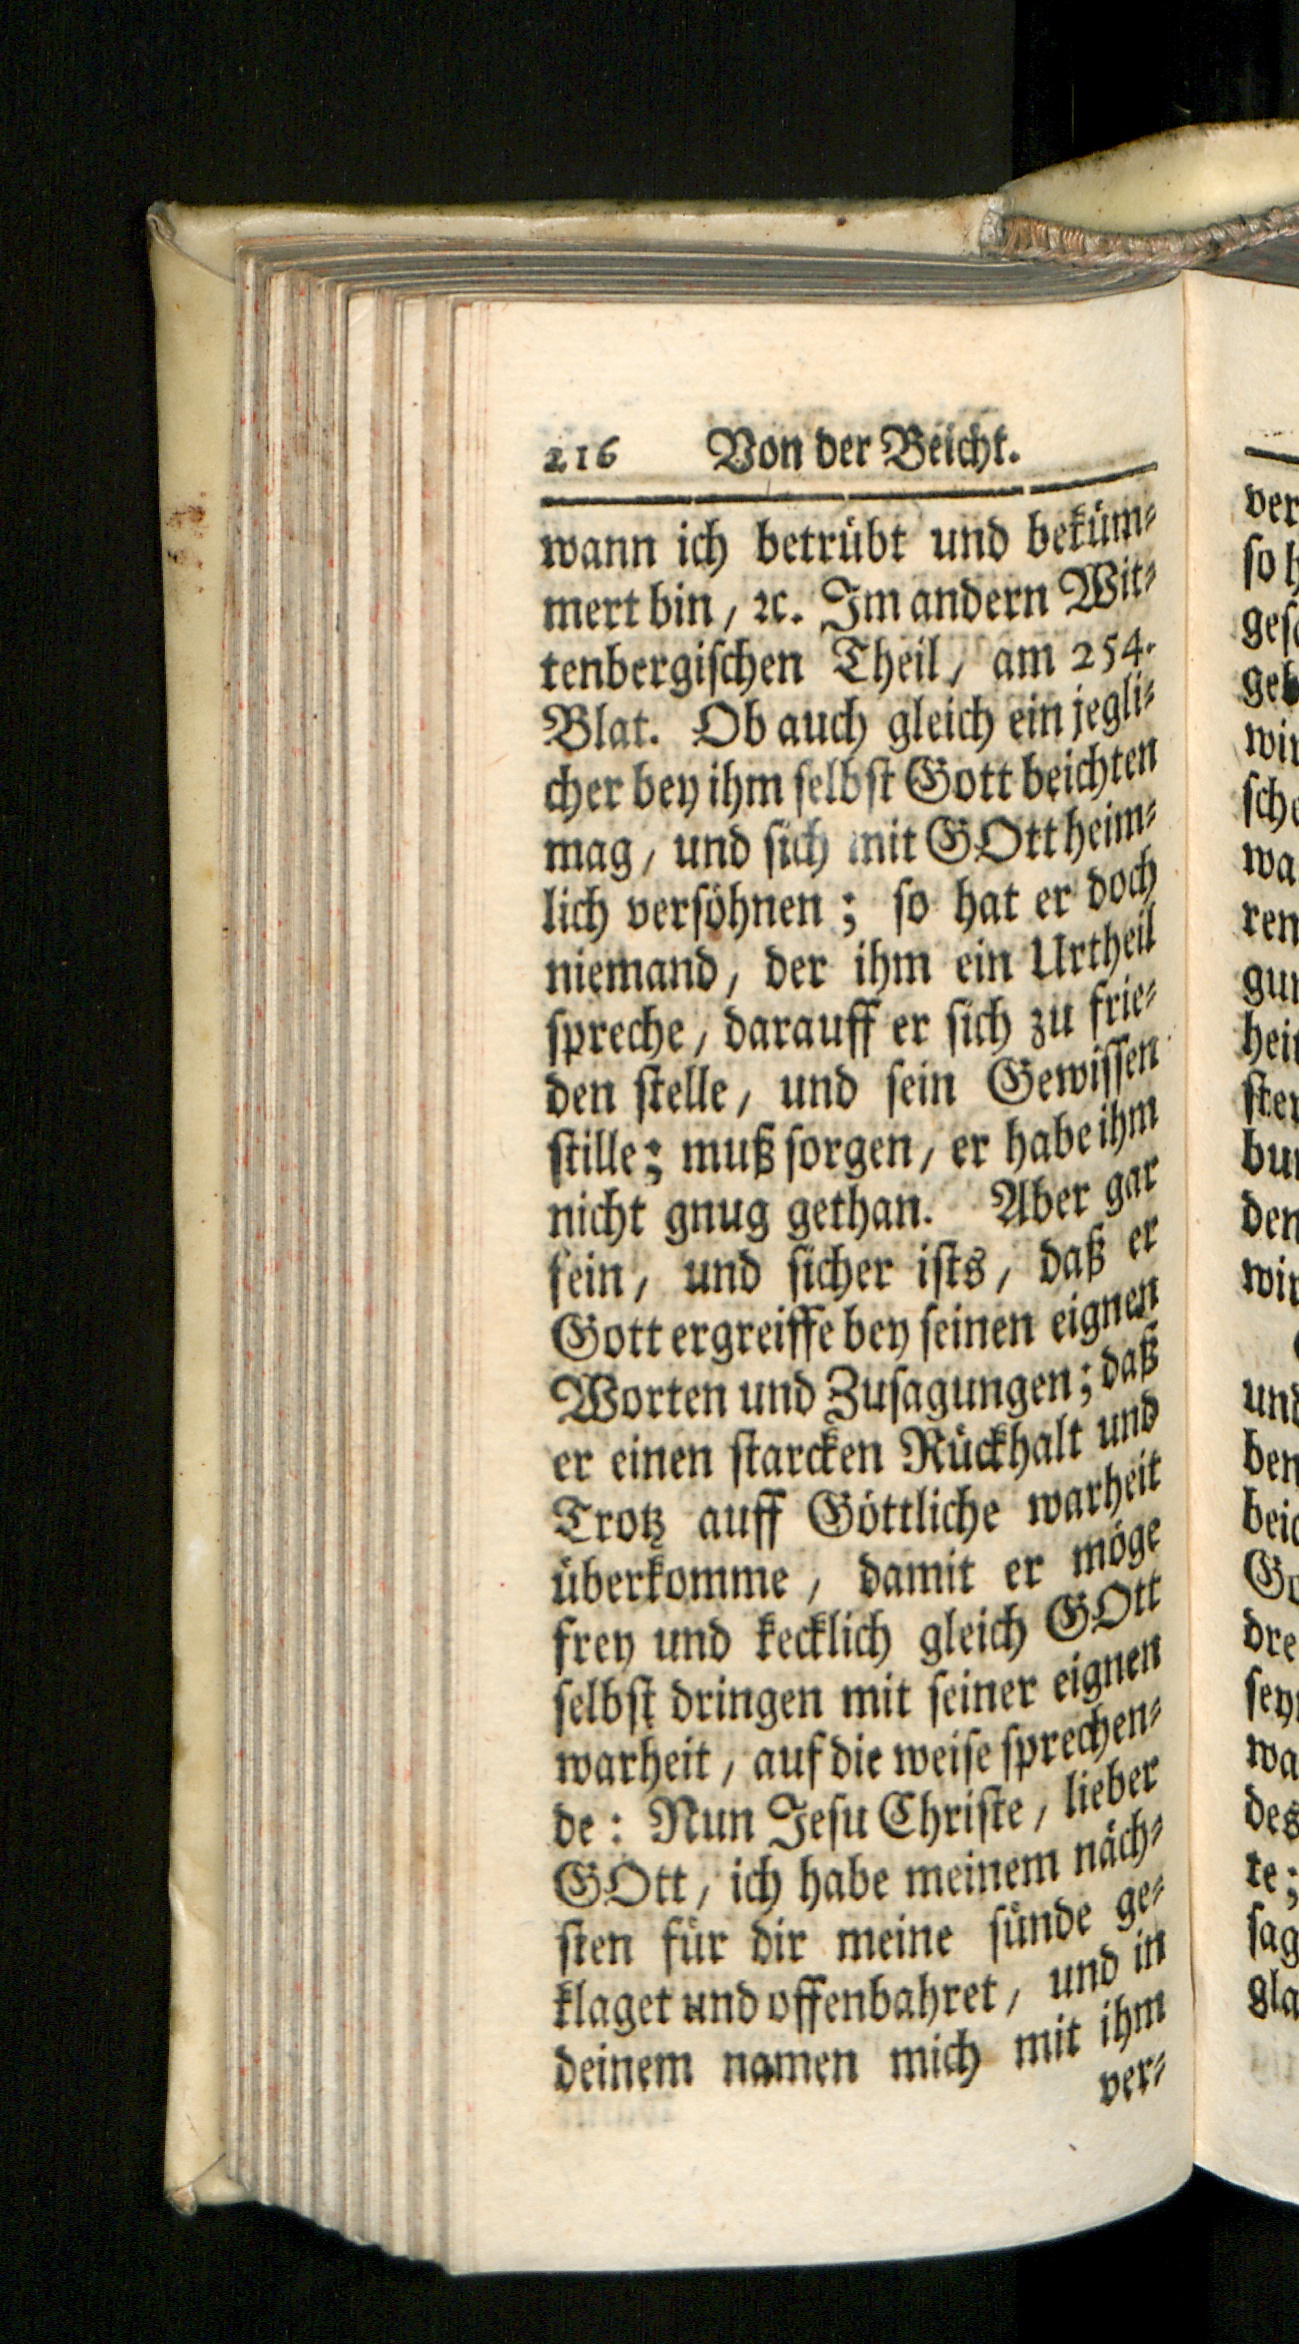 216 Von der Beicht.
wann ich betrübt und beküm⸗
mert bin, ꝛc. Im andern Wit⸗
tenbergischen Theil, am 254.
Blat. Ob auch gleich ein jegli⸗
cher bey ihm selbst Gott beichten
mag, und sich mit GOtt heim⸗
lich versöhnen; so hat er doch
niemand, der ihm ein Urtheil
spreche, darauff er sich zu frie⸗
den stelle, und sein Gewissen
stille; muß sorgen, er habe ihm
nicht gnug gethan. Aber gar
fein, und sicher ists, daß er
Gott ergreiffe bey seinen eignen
Worten und Zusagungen; daß
er einen starcken Rückhalt und
Trotz auff Göttliche warheit
überkomme, damit er möge
frey und kecklich gleich GOtt
selbst dringen mit seiner eignen
warheit, auf die weise sprechen⸗
de: Nun Jesu Christe, lieber
GOtt, ich habe meinem näch⸗
sten für dir meine sünde ge⸗
klaget und offenbahret, und in
deinem namen mich mit ihm
ver⸗